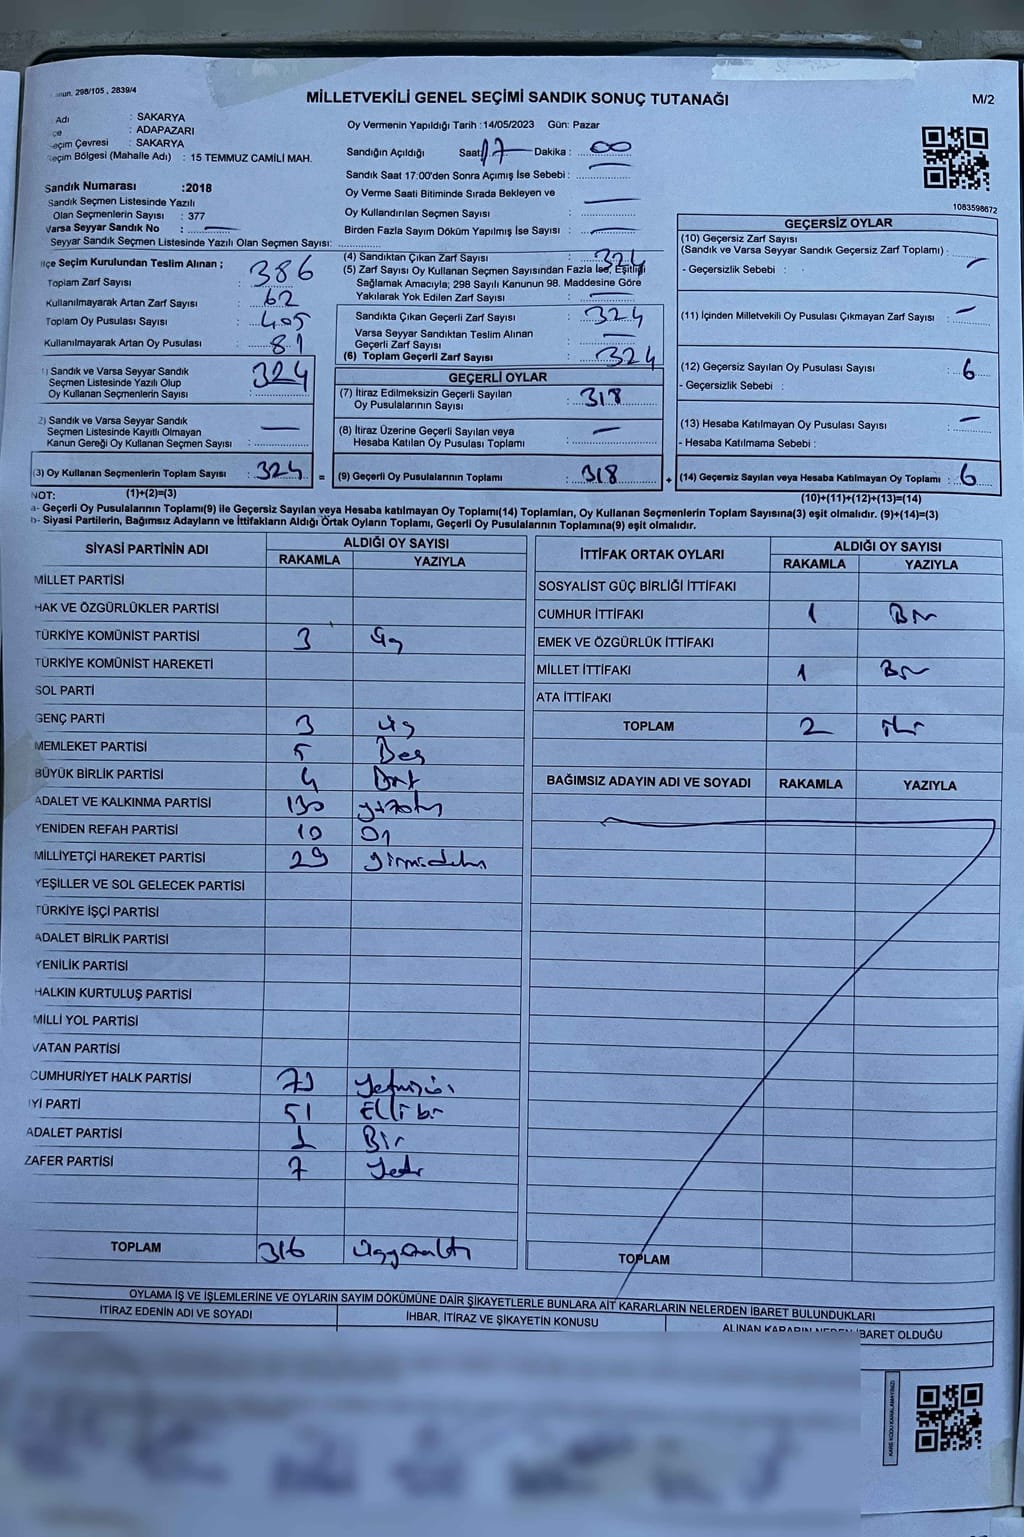 298/105 , 2839/4
MİLLETVEKİLİ GENEL SEÇİMİ SANDIK SONUÇ TUTANAĞI
M/2
Adı : SAKARYA
: ADAPAZARI
Seçim Çevresi : SAKARYA
Seçim Bölgesi (Mahalle Adı) : 15 TEMMUZ CAMİLİ MAH.
Sandık Numarası :2018
Sandık Seçmen Listesinde Yazılı
Olan Seçmenlerin Sayısı : 377
Varsa Seyyar Sandık No :
Seyyar Sandık Seçmen Listesinde Yazılı Olan Seçmen Sayısı:
Oy Vermenin Yapıldığı Tarih :14/05/2023 Gün: Pazar
Sandığın Açıldığı Saat: 17 Dakika : 00
Sandık Saat 17:00'den Sonra Açımış İse Sebebi :
Oy Verme Saati Bitiminde Sırada Bekleyen ve
Oy Kullandırılan Seçmen Sayısı :
Birden Fazla Sayım Döküm Yapılmış İse Sayısı :
1083598672
İlçe Seçim Kurulundan Teslim Alınan ;
Toplam Zarf Sayısı : 386
Kullanılmayarak Artan Zarf Sayısı : 62
Toplam Oy Pusulası Sayısı : 405
Kullanılmayarak Artan Oy Pusulası : 81
1) Sandık ve Varsa Seyyar Sandık
Seçmen Listesinde Yazılı Olup
Oy Kullanan Seçmenlerin Sayısı : 324
2) Sandık ve Varsa Seyyar Sandık
Seçmen Listesinde Kayıtlı Olmayan
Kanun Gereği Oy Kullanan Seçmen Sayısı :
(3) Oy Kullanan Seçmenlerin Toplam Sayısı : 324 =
(4) Sandıktan Çıkan Zarf Sayısı : 324
(5) Zarf Sayısı Oy Kullanan Seçmen Sayısından Fazla İse, Eşitliği
Sağlamak Amacıyla; 298 Sayılı Kanunun 98. Maddesine Göre
Yakılarak Yok Edilen Zarf Sayısı :
Sandıkta Çıkan Geçerli Zarf Sayısı : 324
Varsa Seyyar Sandıktan Teslim Alınan
Geçerli Zarf Sayısı :
(6) Toplam Geçerli Zarf Sayısı : 324
GEÇERLİ OYLAR
(7) İtiraz Edilmeksizin Geçerli Sayılan
Oy Pusulalarının Sayısı : 318
(8) İtiraz Üzerine Geçerli Sayılan veya
Hesaba Katılan Oy Pusulası Toplamı :
(9) Geçerli Oy Pusulalarının Toplamı : 318 +
GEÇERSİZ OYLAR
(10) Geçersiz Zarf Sayısı
(Sandık ve Varsa Seyyar Sandık Geçersiz Zarf Toplamı) :
- Geçersizlik Sebebi :
(11) İçinden Milletvekili Oy Pusulası Çıkmayan Zarf Sayısı :
(12) Geçersiz Sayılan Oy Pusulası Sayısı : 6
- Geçersizlik Sebebi :
(13) Hesaba Katılmayan Oy Pusulası Sayısı :
- Hesaba Katılmama Sebebi :
(14) Geçersiz Sayılan veya Hesaba Katılmayan Oy Toplamı : 6
NOT: (1)+(2)=(3)
(10)+(11)+(12)+(13)=(14)
a- Geçerli Oy Pusulalarının Toplamı(9) ile Geçersiz Sayılan veya Hesaba katılmayan Oy Toplamı(14) Toplamları, Oy Kullanan Seçmenlerin Toplam Sayısına(3) eşit olmalıdır. (9)+(14)=(3)
b- Siyasi Partilerin, Bağımsız Adayların ve İttifakların Aldığı Ortak Oyların Toplamı, Geçerli Oy Pusulalarının Toplamına(9) eşit olmalıdır.
SİYASİ PARTİNİN ADI
ALDIĞI OY SAYISI
RAKAMLA YAZIYLA
MİLLET PARTİSİ
HAK VE ÖZGÜRLÜKLER PARTİSİ
TÜRKİYE KOMÜNİST PARTİSİ 3 üç
TÜRKİYE KOMÜNİST HAREKETİ
SOL PARTİ
GENÇ PARTİ 3 üç
MEMLEKET PARTİSİ 5 Beş
BÜYÜK BİRLİK PARTİSİ 4 Dört
ADALET VE KALKINMA PARTİSİ 130 yüzotuz
YENİDEN REFAH PARTİSİ 10 On
MİLLİYETÇİ HAREKET PARTİSİ 29 yirmidokuz
YEŞİLLER VE SOL GELECEK PARTİSİ
TÜRKİYE İŞÇİ PARTİSİ
ADALET BİRLİK PARTİSİ
YENİLİK PARTİSİ
HALKIN KURTULUŞ PARTİSİ
MİLLİ YOL PARTİSİ
VATAN PARTİSİ
CUMHURİYET HALK PARTİSİ 73
İYİ PARTİ 51 Elli bir
ADALET PARTİSİ 1 Bir
ZAFER PARTİSİ 7 Yedi
TOPLAM 316 üçyüzonaltı
İTTİFAK ORTAK OYLARI
ALDIĞI OY SAYISI
RAKAMLA YAZIYLA
SOSYALİST GÜÇ BİRLİĞİ İTTİFAKI
CUMHUR İTTİFAKI 1 Bir
EMEK VE ÖZGÜRLÜK İTTİFAKI
MİLLET İTTİFAKI 1 Bir
ATA İTTİFAKI
TOPLAM 2 iki
BAĞIMSIZ ADAYIN ADI VE SOYADI RAKAMLA YAZIYLA
TOPLAM
OYLAMA İŞ VE İŞLEMLERİNE VE OYLARIN SAYIM DÖKÜMÜNE DAİR ŞİKAYETLERLE BUNLARA AİT KARARLARIN NELERDEN İBARET BULUNDUKLARI
İTİRAZ EDENİN ADI VE SOYADI
İHBAR, İTİRAZ VE ŞİKAYETİN KONUSU
ALINAN KARARIN NEDEN İBARET OLDUĞU